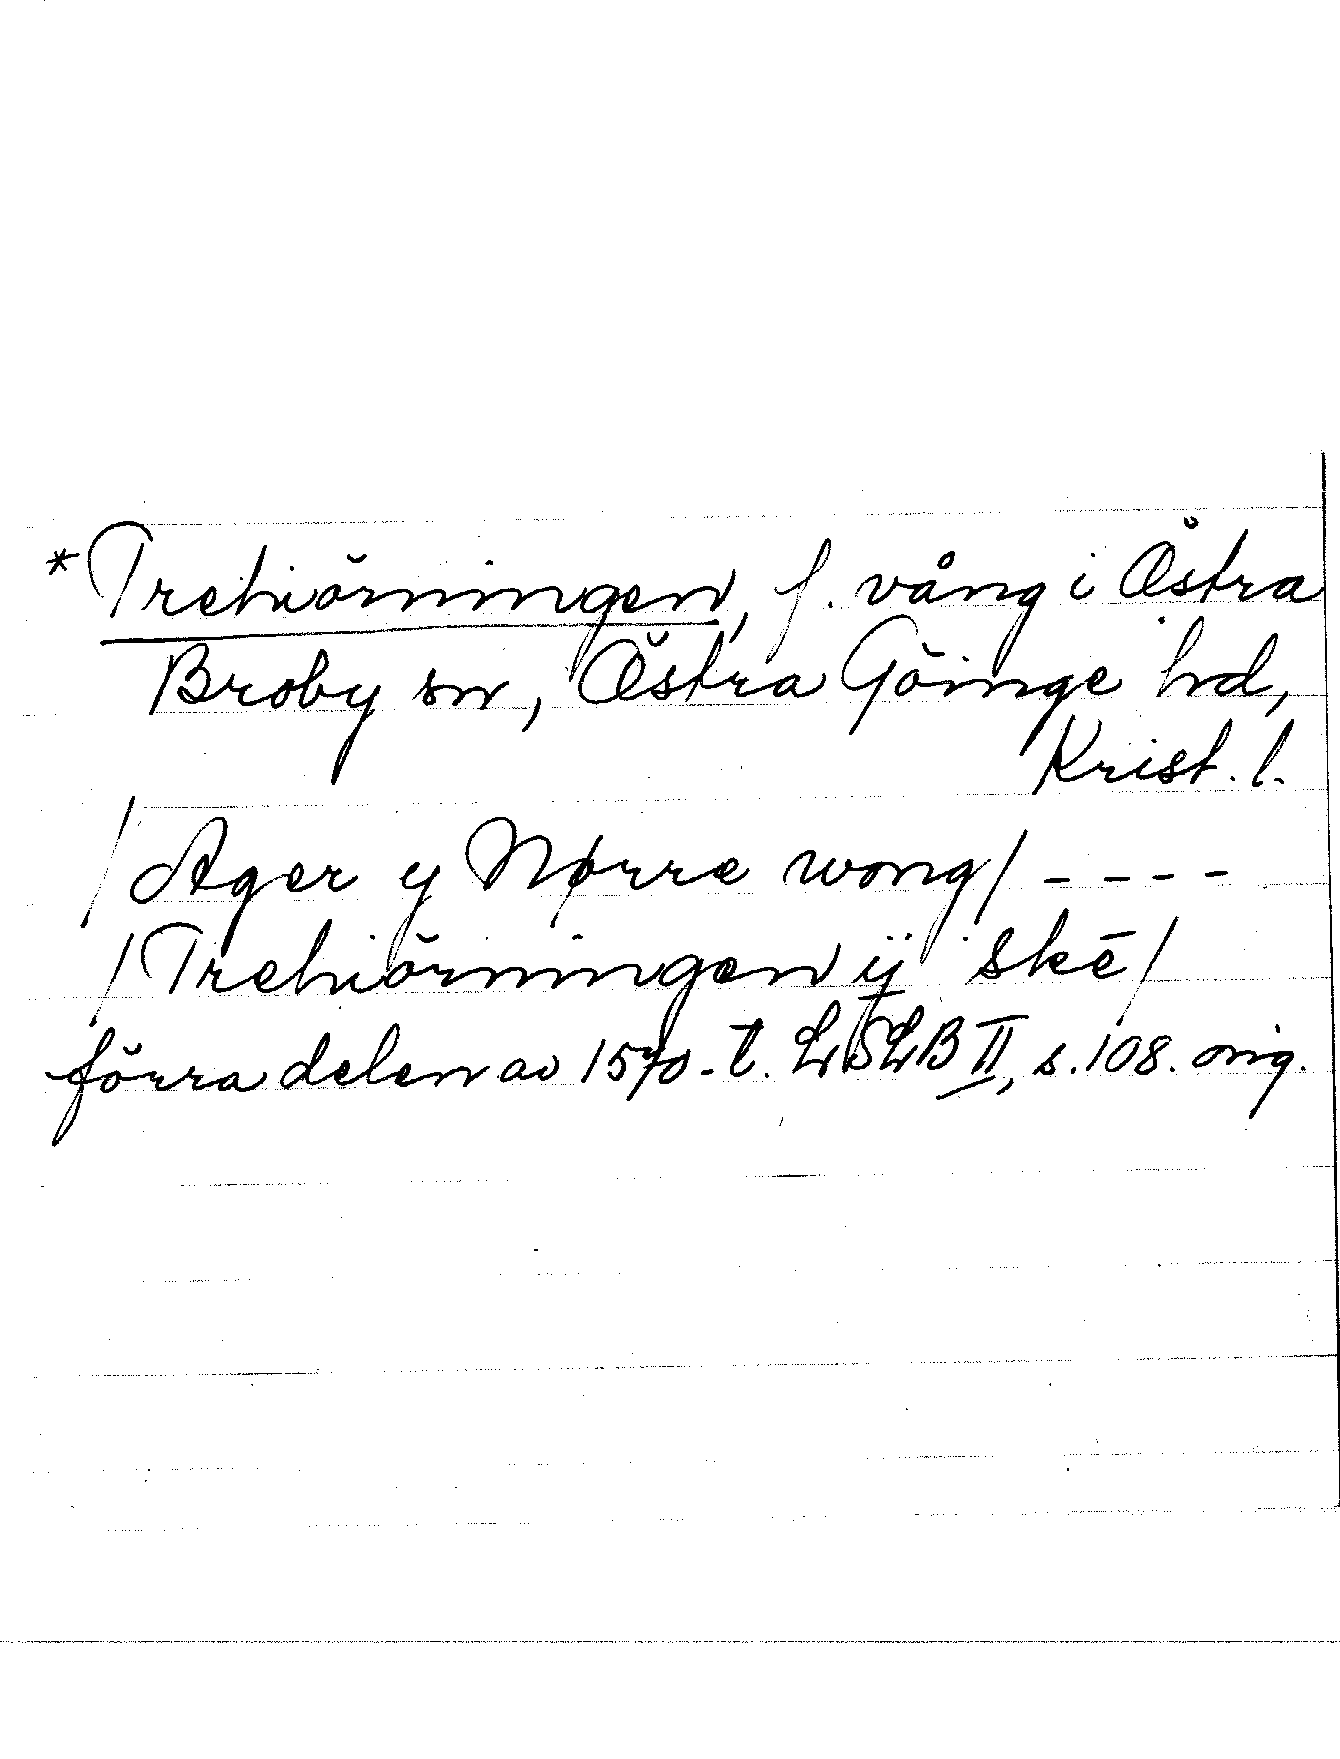 *Trehiörningen, f. vång i Östra
Broby sn, Östra Göinge hd,
Krist. l.
/Ager y Nørre wong/ - - - -
/Trehiörningen ij skē/
förra delen av 1570-t. LSLB II, s. 108. orig.